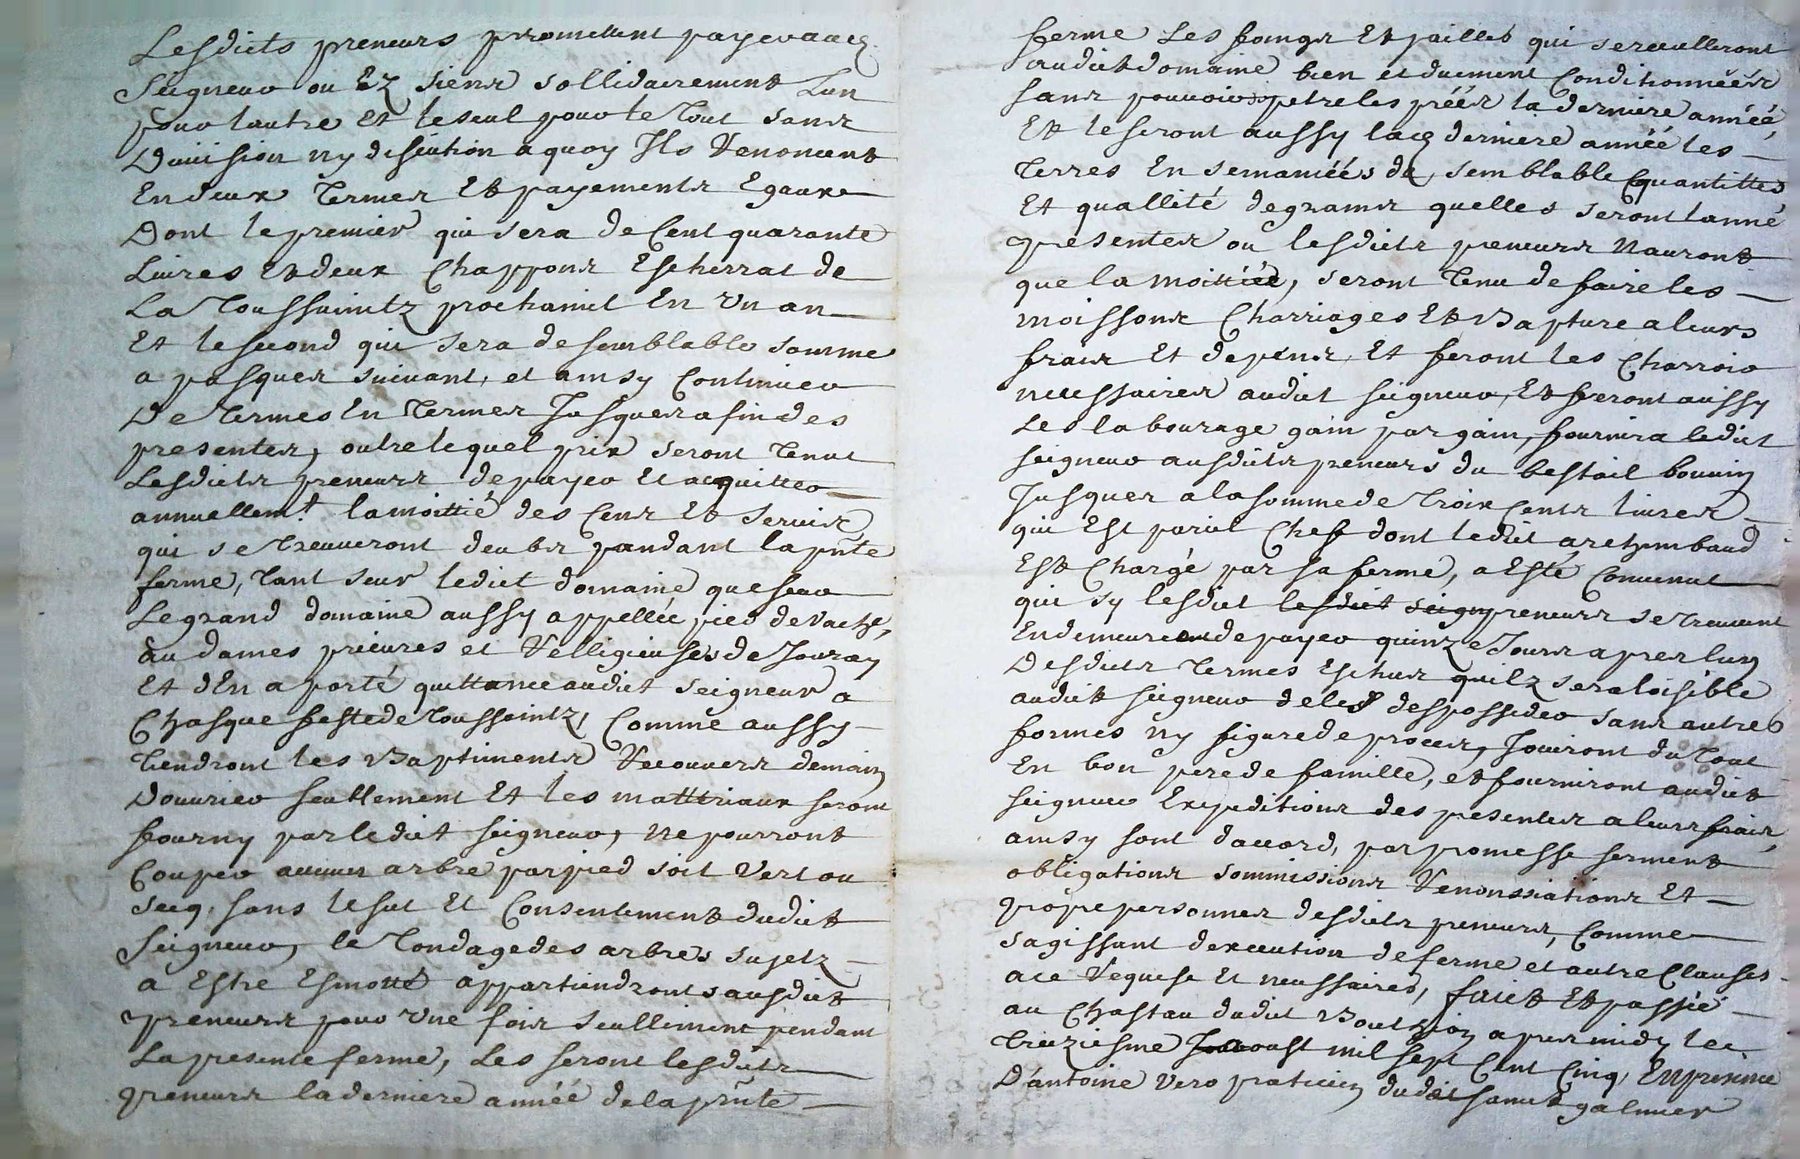 Lesdicts preneurs promettent payer audt
Seigneur ou Ez siens sollidairement Lun
pour lautre et le seul pour le tout sans
Diuision ny discution a quoy Ils Renoncent
En deux Termes Et payements Egaux
Dont le premier qui sera de Cent quarante
Liures Et deux Chappons Escherrat de
La Toussainctz prochainet En Un an
Et le second qui sera de semblable somme
a pasques suiuant, et ainsy Continuer
De Termes En Termes Jusques a fin des
presentes, outre lequel prix seront Tenus
Lesdicts preneurs de payer Et acquitter
annuellemt. la moittié des Cens Et Seruis
qui se treuueront deubs pandant la pnte
ferme, tant seur ledict domaine que seur
Le grand domaine aussy appellée pied de vache,
au dames prieures et Relligieuses de Jourcey
Et d'En aporté quittance audict seigneur a
Chasque feste de Toussainctz, Comme aussy
Tiendront les Baptiments Recouuers de main
Douurier seullement Et les matteriaux seront
fourny par ledict seigneur, Ne pourront
Couper aucuns arbre par pied soit Vert ou
secq, sans le sut Et Consentement dudict
Seigneur, le Tondage des arbres sujetz
a Estre Esmotté appartiendront ausdict
preneurs pour Une fois seullement pendant
La presente ferme, Les seront lesdicts
preneurs la derniere année de la pnte
ferme Les foings Et pailles qui se reculleront
audict domaine bien et duement Conditionnéés
sans pouuoir petre les préés la derniere année,
Et le seront aussy lad derniere année les
Terres En semancéés de semblable quantittes
Et quallité de grains quelles seront lanné
presentes ou lesdicts preneurs Nauront
que la moittiée, seront Tenu de faire les
moissons Charriages Et Bapture a leurs
frais Et depens, Et feront les Charrois
necessaires audict seigneur, Et feront aussy
Les labourage gain par gain, fournira ledict
seigneur ausdicts preneurs du bestail bouuin
Jusques a la somme de Troix Cents liures
qui Est pariet Chef dont ledit archimbaud
Est Chargé par sa ferme, a Esté Conuenut
qui sy lesdict lesdict seign preneurs se treuuent
En demeure de payer quinze Jours apres lun
Desdicts Termes Escheus quilz sera loisible
audict seigneur de les despossider sans autres
formes ny figure de proces, Jouiront du Tout
En bon pere de famille, et fourniront audict
seigneur Expeditions des presentes a leurs frais,
ainsy sont daccord, par promesse serment
obligations sommissions Renonssiations Et
propre personnes desdicts preneurs, Comme
sagissant dexecution de ferme et autre Clauses
ace Requise Et necessaires, faict Et passée
au Chastau dudict Bouthéon apres midy le
Treiziesme aoust mil sept Cent Cinq, En presence
D'antoine Vero praticien dudict sainct galmier